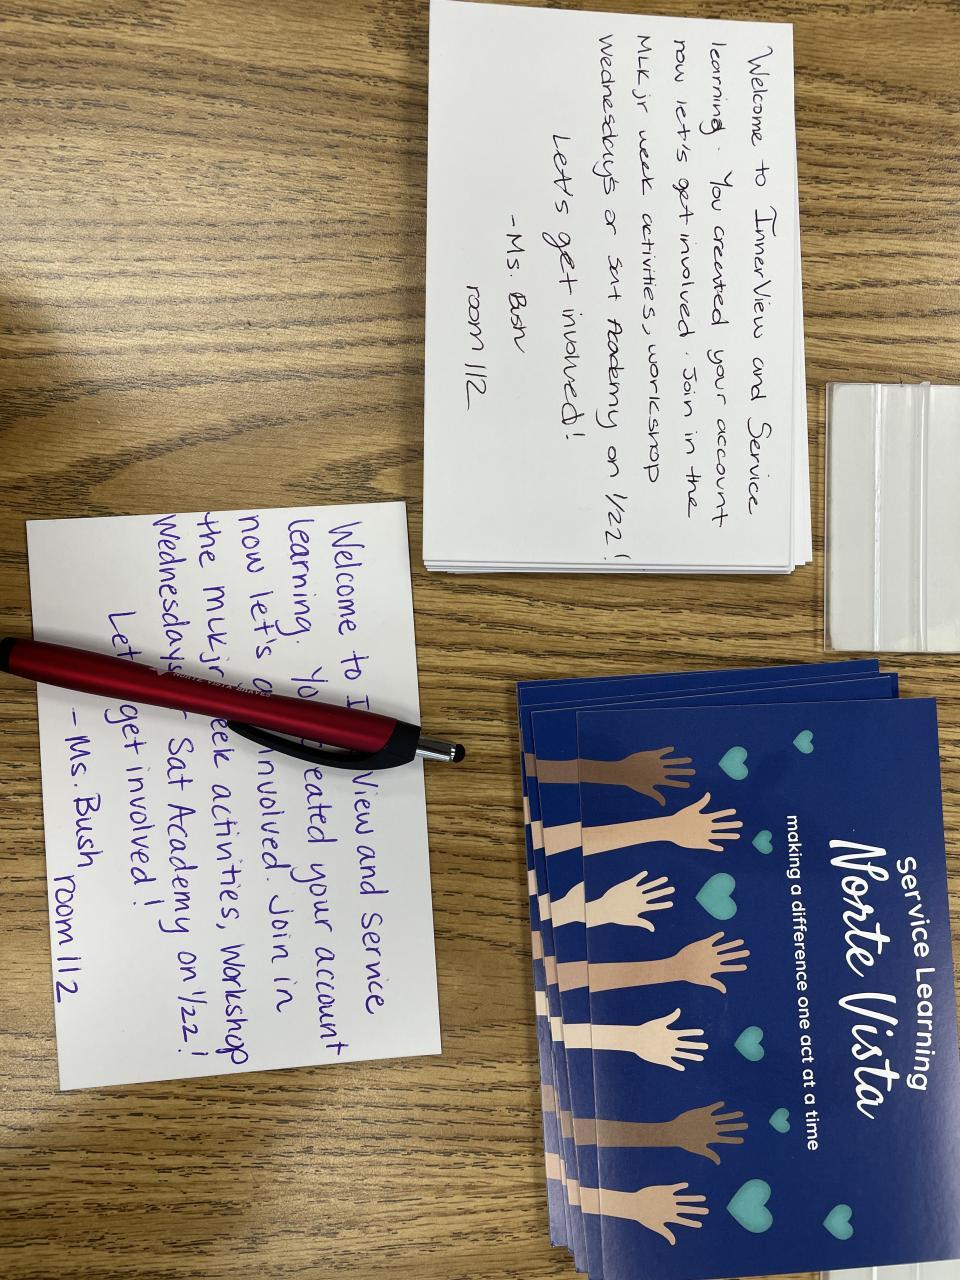 Welcome to InnerView and Service
learning. You created your account
now let's get involved. Join in the
MLK jr week activities, workshop
Wednesdays or sat Academy on 1/22!
Let's get involved!
-Ms. Bush
room 112
Welcome to I View and Service
learning. Yo eated your account
now let's involved. Join in
the MLK jr eek activities, Workshop
Wednesdays Sat Academy on 1/22!
Let get involved!
-Ms. Bush room 112
Service Learning
Norte Vista
making a difference one act at a time